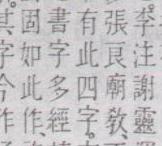 李注謝靈
張良廟敎
有此四字。
書字多經
固如此作
其字今作